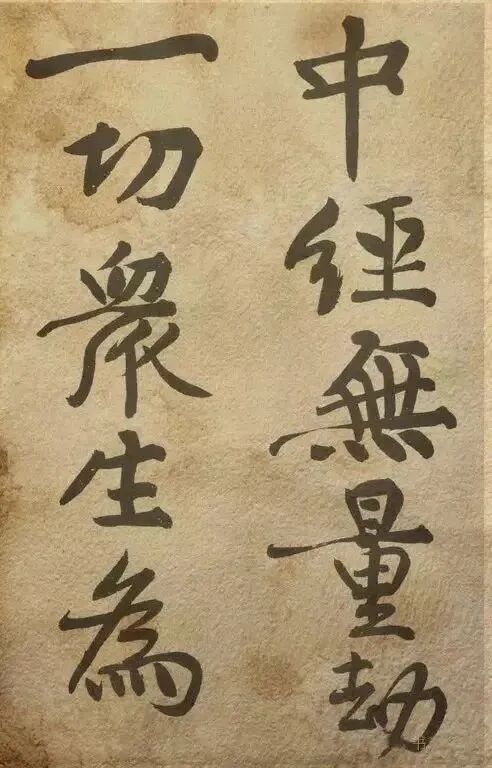 中經無量劫
一切眾生為